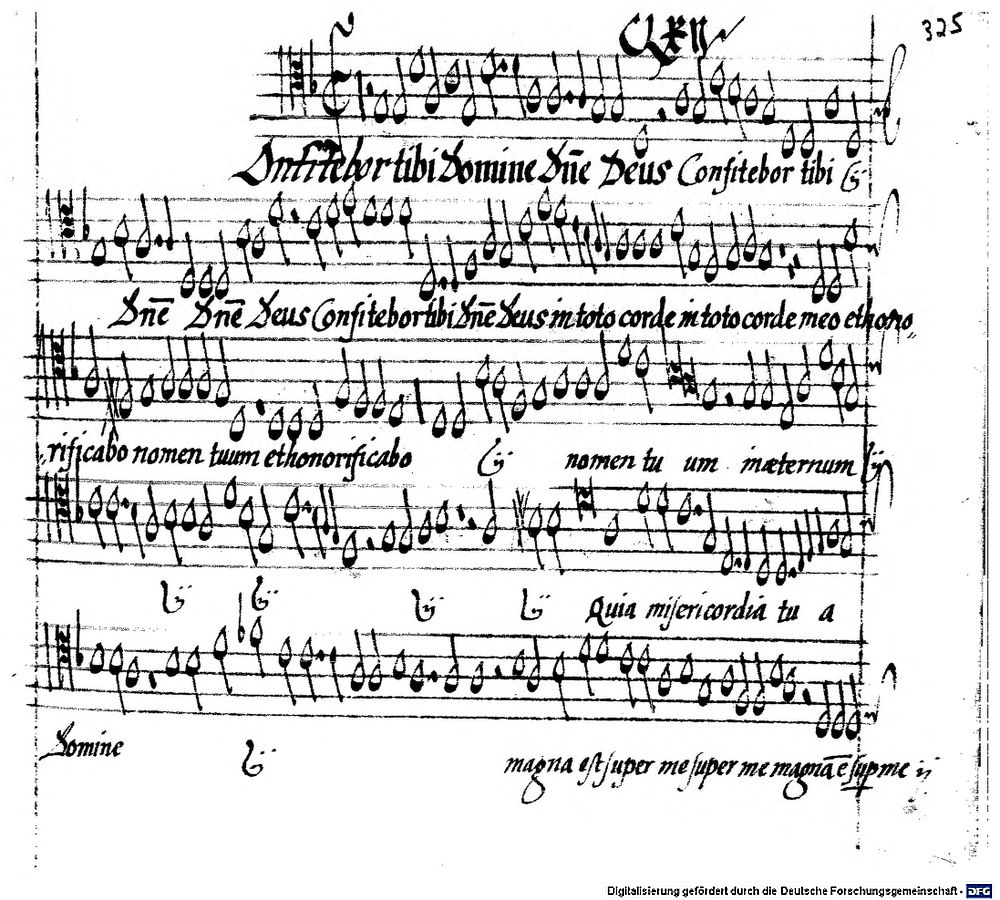 325
Confitebor tibi Domine Dñe Deus Confitebor tibi ij
Dñe Dñe Deus Confitebor tibi Dñe Deus in toto corde in toto corde meo et hono
rificabo nomen tuum et honorificabo ij nomen tu um in æternum ij
ij ij ij ij Quia misericordia tu a
Domine ij magna est super me super me magna ẽ sup me ij
Digitalisierung gefördert durch die Deutsche Forschungsgemeinschaft - DFG